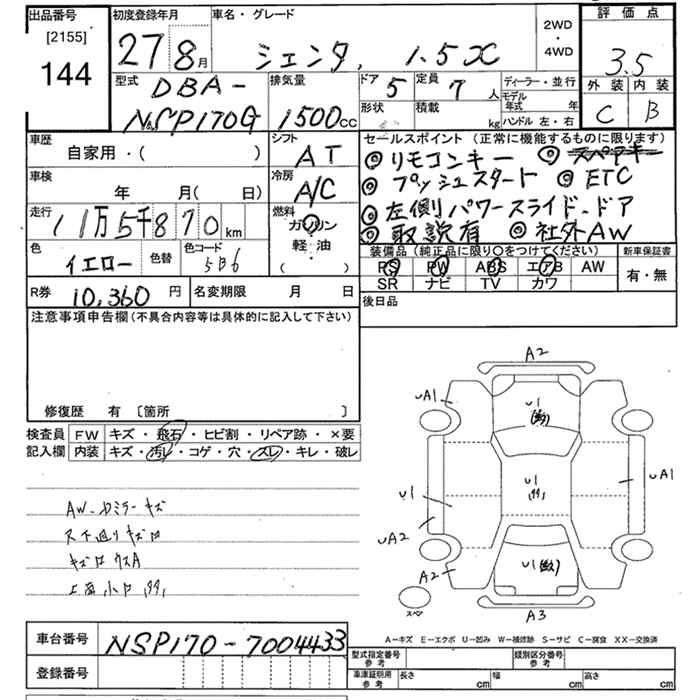 出品番号 初度登録年月 車名・グレード 2WD・4WD 評価点
[2155]
144 27 8月 シエンタ 1.5X 3.5
外装 内装
C B
型式 DBA- 排気量 ドア 5 定員 7人 ディーラー・並行
NSP170G 1500CC 形状 積載 kg モデル年式 年
ハンドル 左・右
車歴 シフト セールスポイント (正常に機能するものに限ります)
自家用・( ) AT ◎リモコンキー ◎スペアキー
車検 冷房 ◎プッシュスタート ◎ETC
年 月( 日) A/C ◎左側パワースライドドア
走行 11万5千870km 燃料 ガソリン ◎取説有 ◎社外AW
軽・油
( )
色 イエロー 色替 色コード 5B6
装備品 (純正品に限り○をつけてください) 新車保証書
PS PW ABS エアB AW 有・無
SR ナビ TV カワ
R券 10,360円 名変期限 月 日 後日品
注意事項申告欄 (不具合内容等は具体的に記入して下さい)
修復歴 有 〔箇所 〕
検査員 FW キズ・飛石・ヒビ割・リペア跡・×要
記入欄 内装 キズ・汚レ・コゲ・穴・スレ・キレ・破レ
AW
ミラーキズ
下廻りキズ
A2
UA1
U1
U1
UA1
U1
UA2
A2
U1
スペア
A3
A−キズ E−エクボ U−凹み W−補修跡 S−サビ C−腐食 XX−交換済
車台番号 NSP170-7004433
登録番号
型式指定番号 参考 類別区分番号 参考
車庫証明用 参考 長さ cm 幅 cm 高さ cm